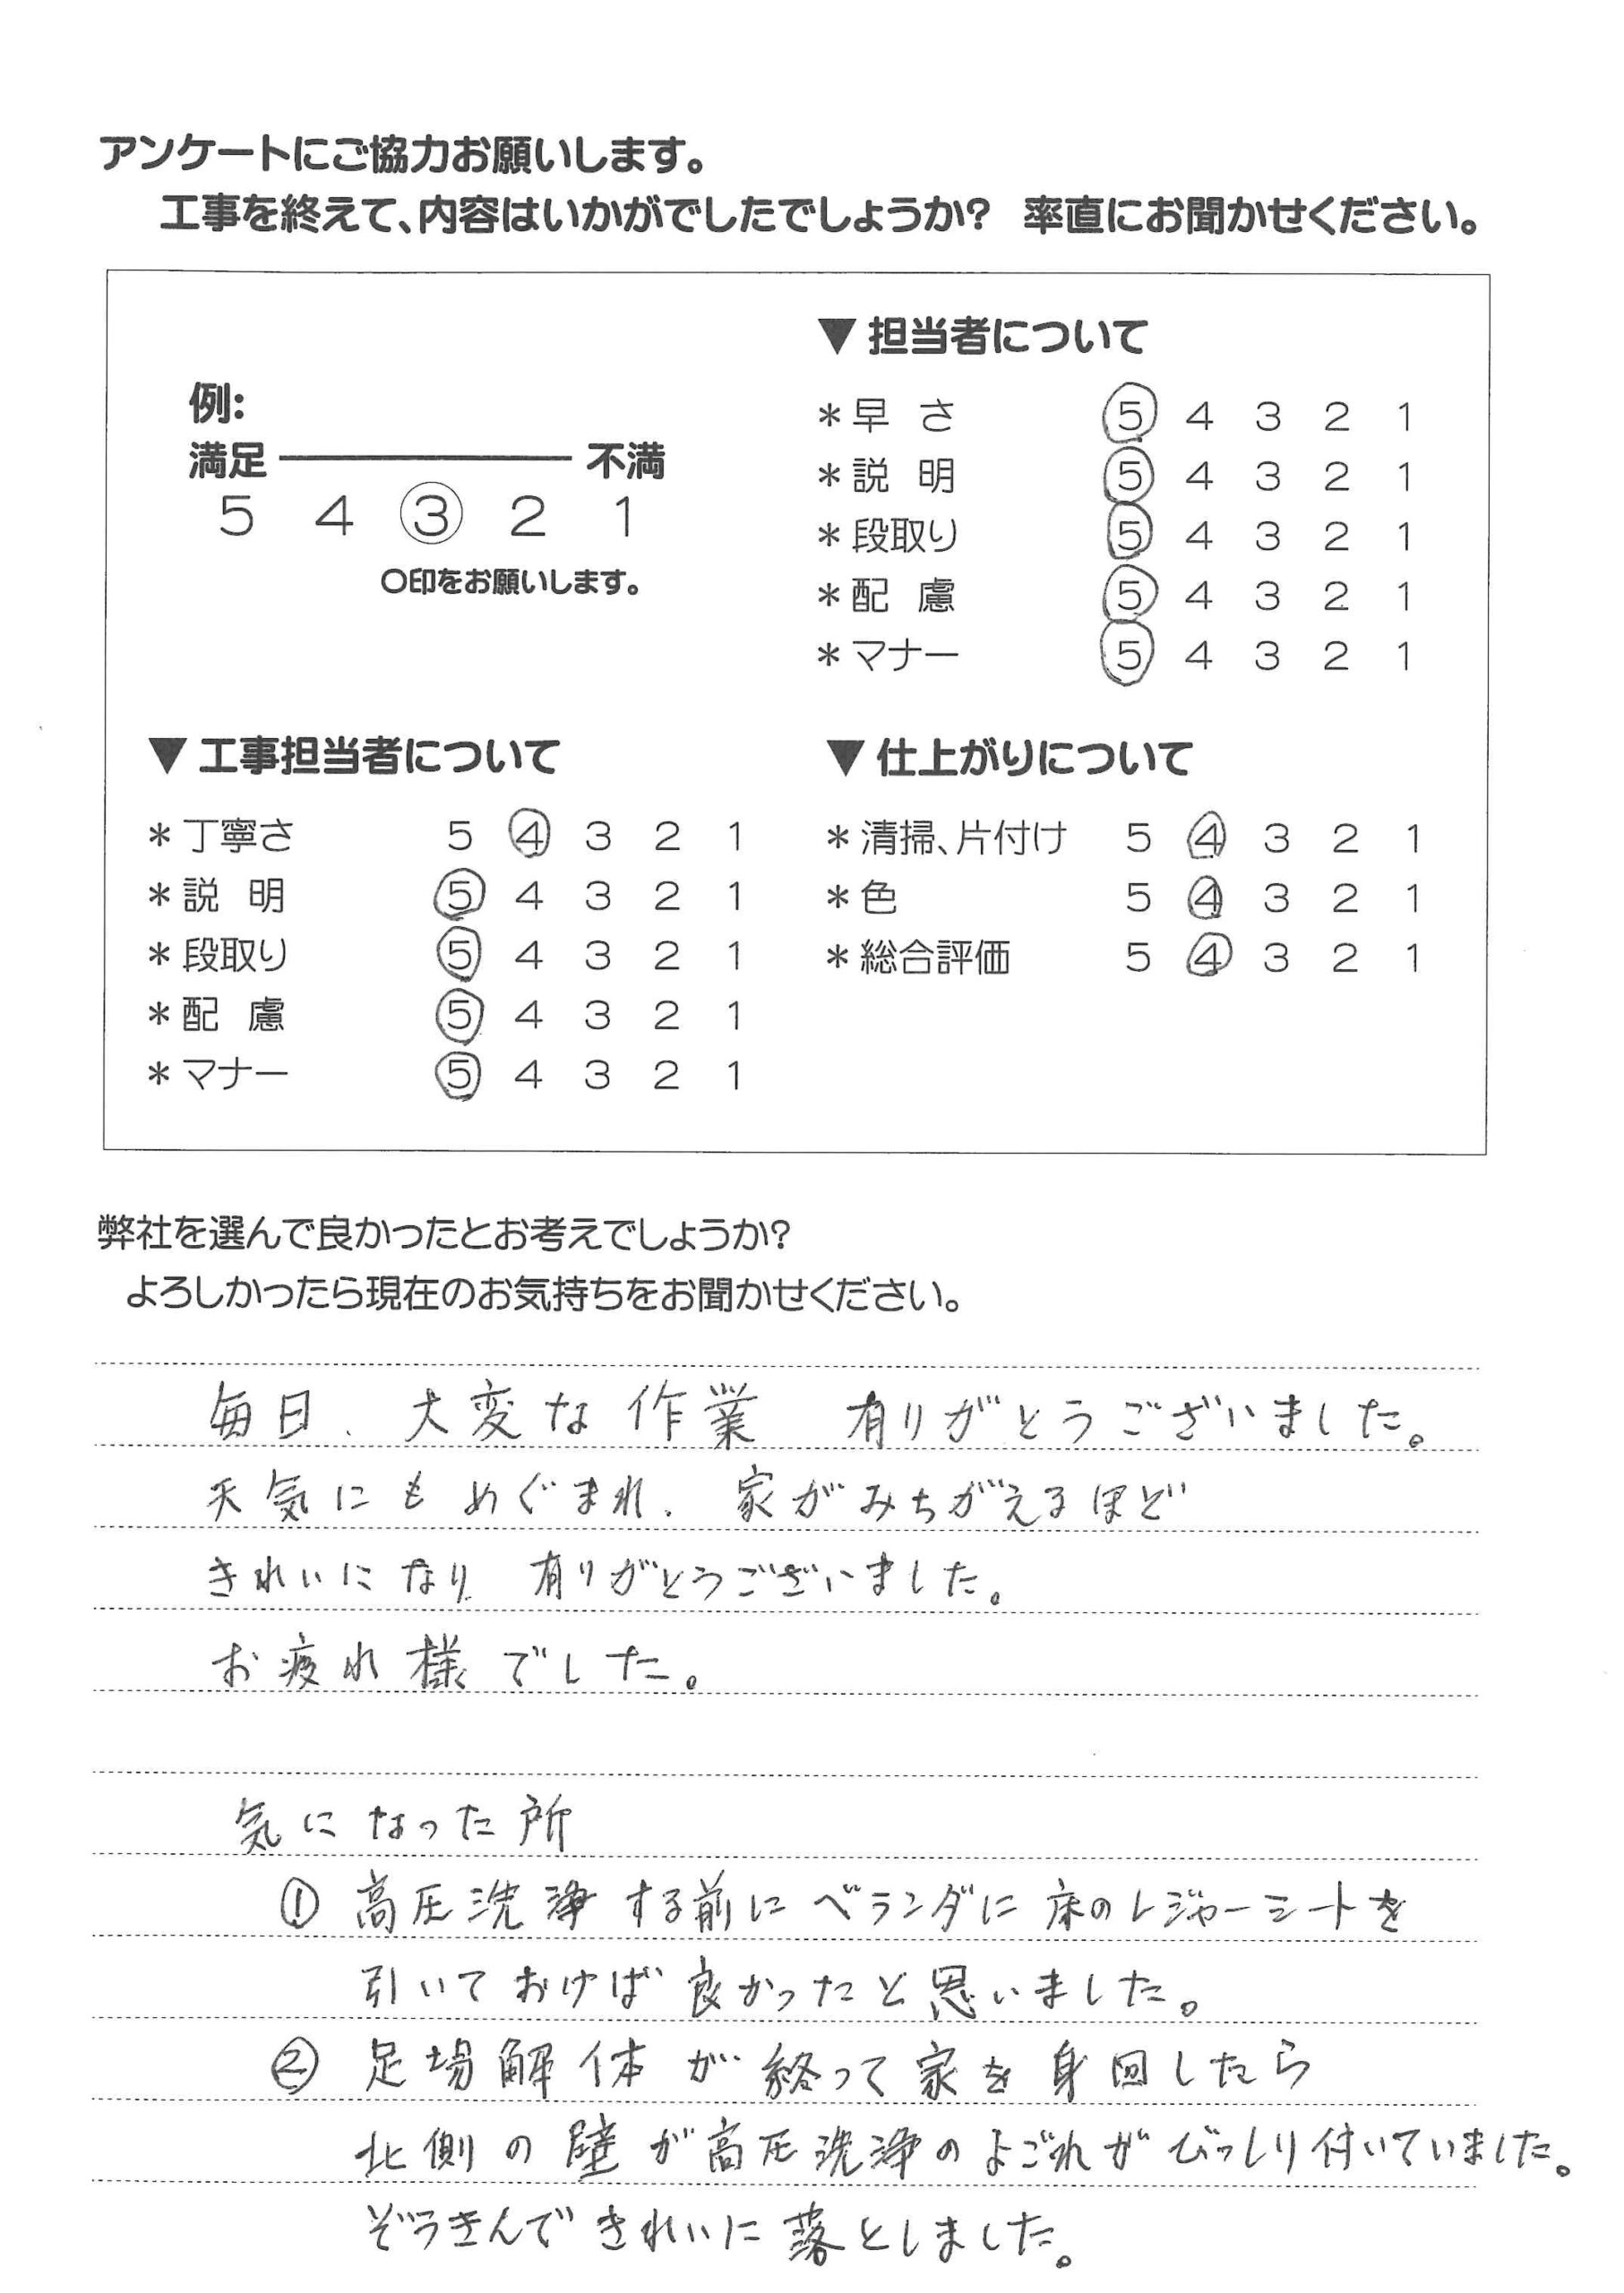 アンケートにご協力お願いします。
工事を終えて、内容はいかがでしたでしょうか? 率直にお聞かせください。
例:
満足 不満
5 4 ③ 2 1
○印をお願いします。
▼担当者について
*早さ ⑤ 4 3 2 1
*説明 ⑤ 4 3 2 1
*段取り ⑤ 4 3 2 1
*配慮 ⑤ 4 3 2 1
*マナー ⑤ 4 3 2 1
▼工事担当者について
*丁寧さ 5 ④ 3 2 1
*説明 ⑤ 4 3 2 1
*段取り ⑤ 4 3 2 1
*配慮 ⑤ 4 3 2 1
*マナー ⑤ 4 3 2 1
▼仕上がりについて
*清掃、片付け 5 ④ 3 2 1
*色 5 ④ 3 2 1
*総合評価 5 ④ 3 2 1
弊社を選んで良かったとお考えでしょうか?
よろしかったら現在のお気持ちをお聞かせください。
毎日、大変な作業 有りがとうございました。
天気にもめぐまれ、家がみちがえるほど
きれいになり 有りがとうございました。
お疲れ様でした。
気になった所
① 高圧洗浄する前にベランダに床のレジャーシートを
引いておけば良かったと思いました。
② 足場解体が終って家を身回したら
北側の壁が高圧洗浄のよごれがびっしり付いていました。
ぞうきんできれいに落としました。